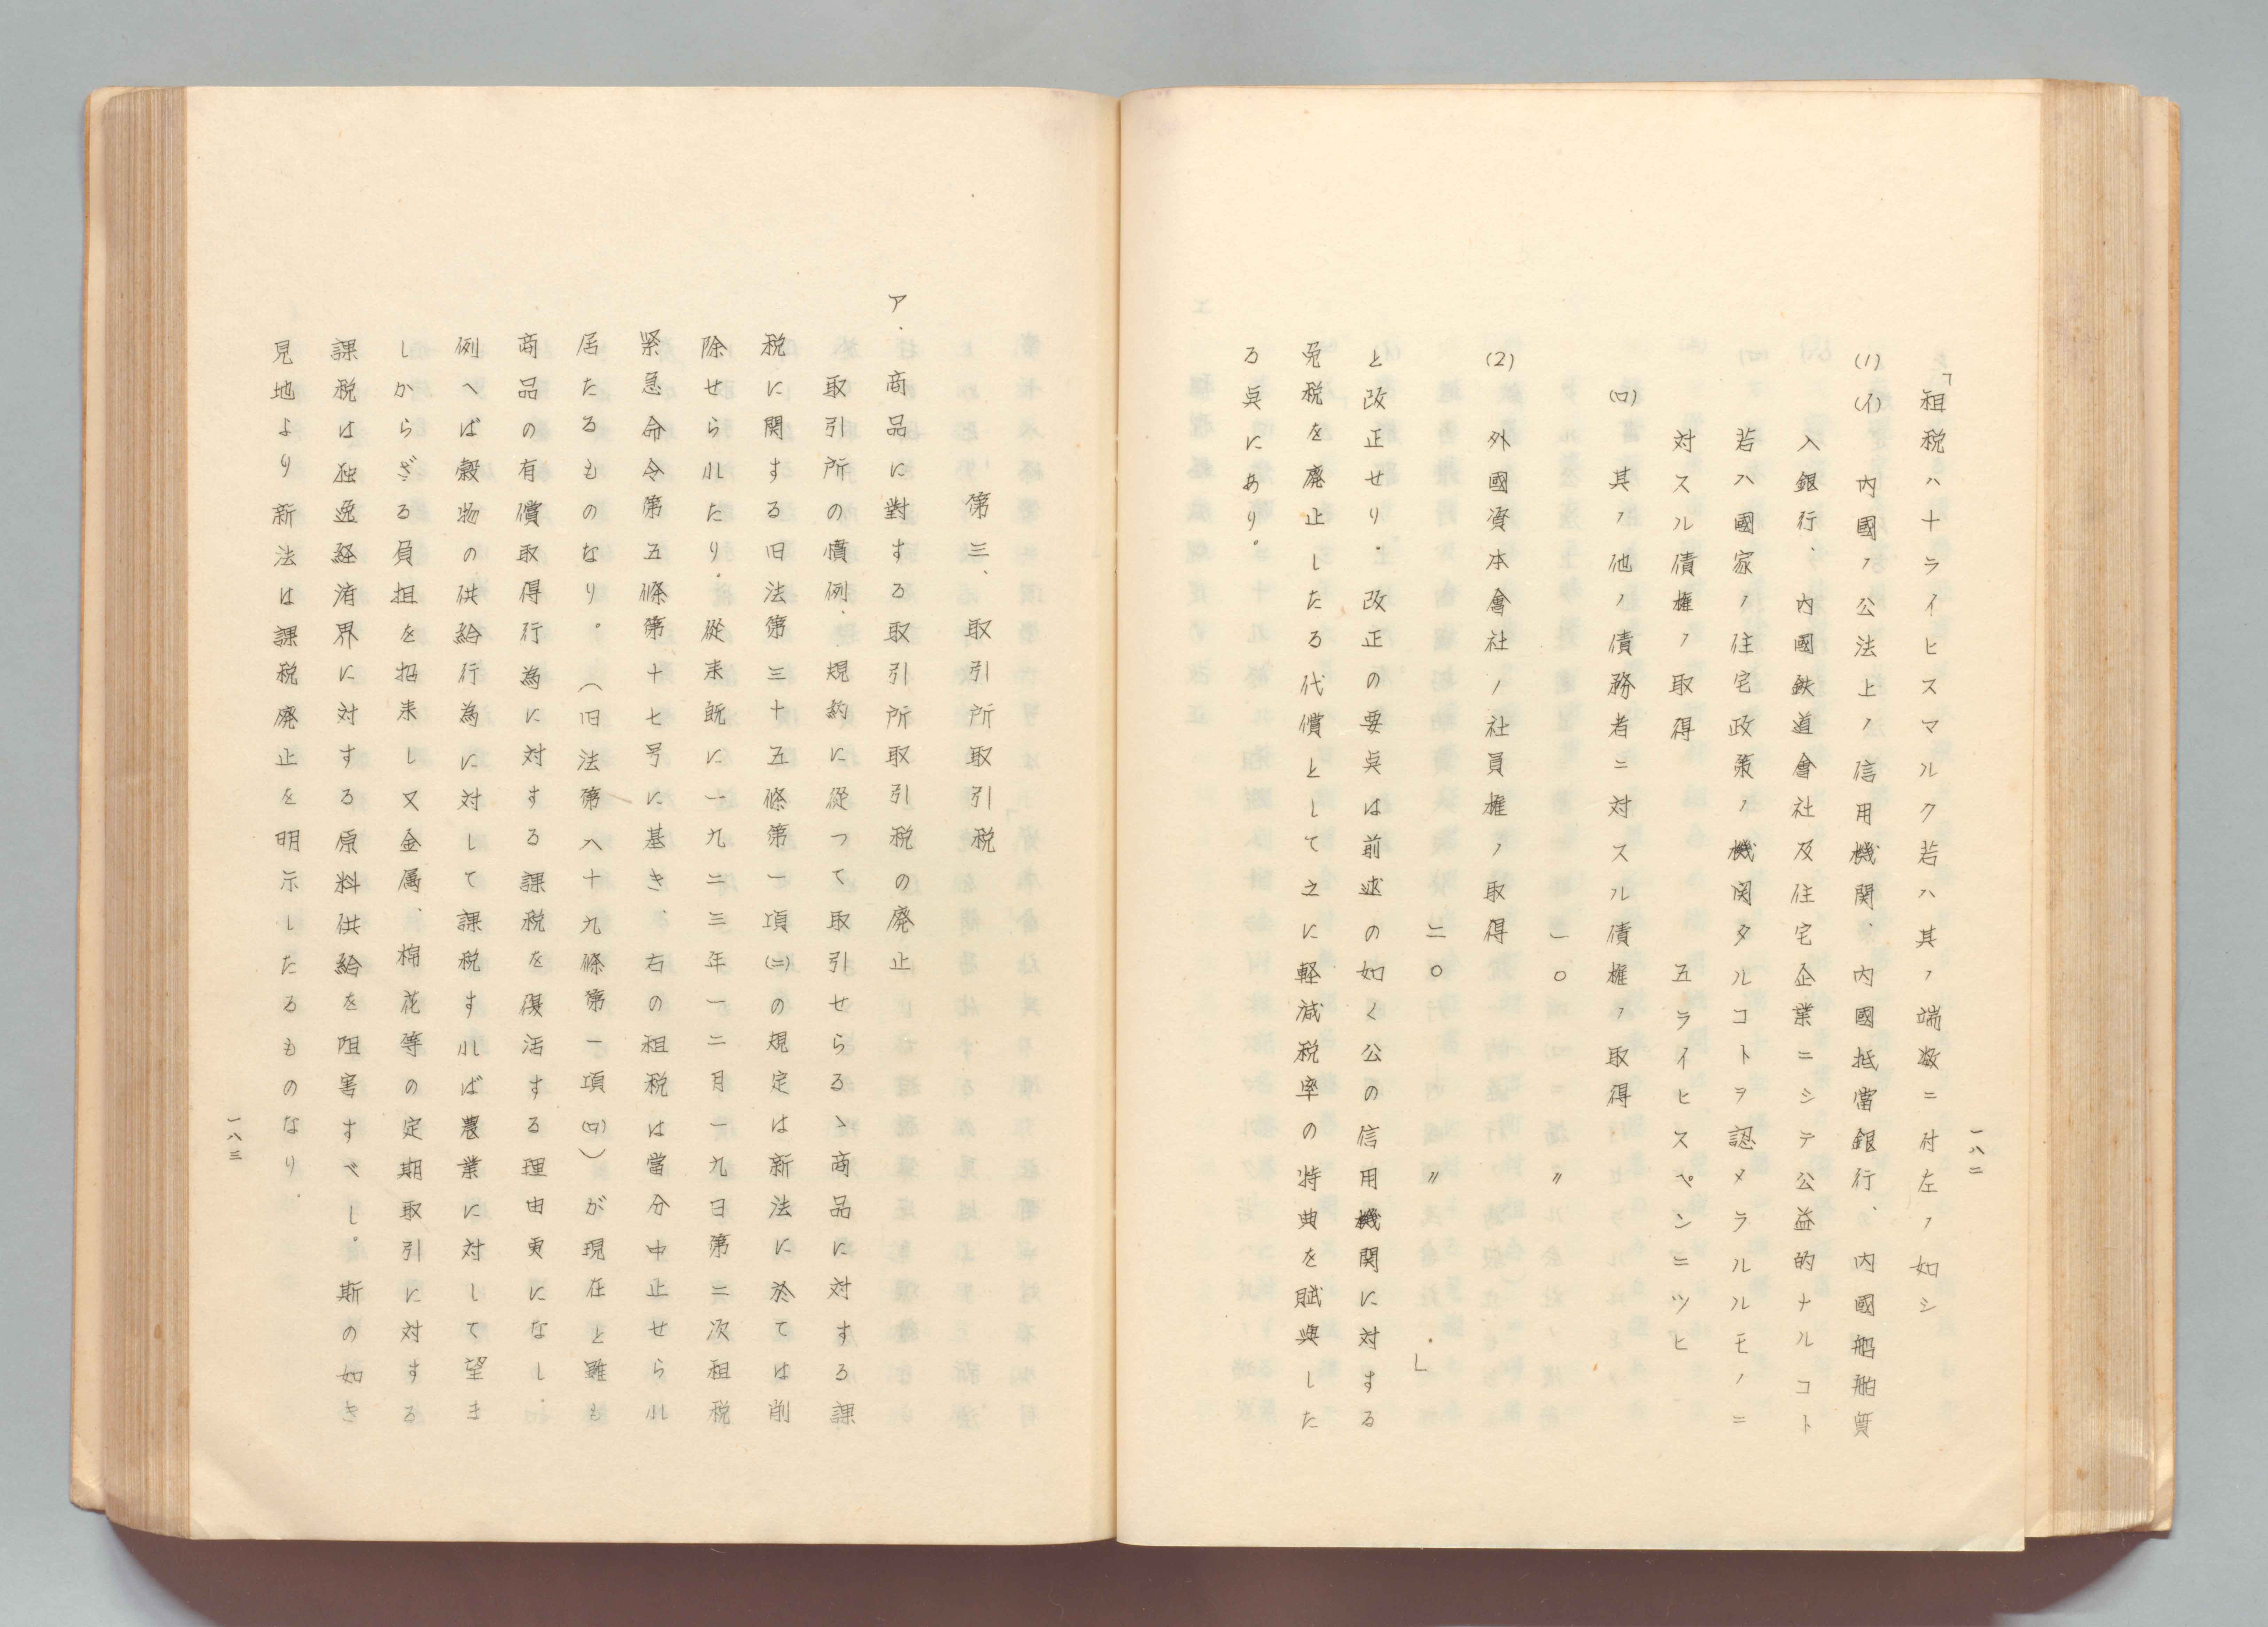 一八二
「租税ハ十ライヒスマルク若ハ其ノ端数ニ付左ノ如シ
(1)(イ) 内國ノ公法上ノ信用機関、内國抵當銀行、内國船舶質
入銀行、内國鉄道會社及住宅企業ニシテ公益的ナルコト
若ハ國家ノ住宅政策ノ機関タルコトヲ認メラルルモノニ
対スル債権ノ取得 五ライヒスペンニツヒ
(ロ) 其ノ他ノ債務者ニ対スル債権ノ取得
一〇 〃
(2) 外國資本會社ノ社員権ノ取得
二〇 〃 .」
と改正せり．改正の要点は前述の如く公の信用機関に対する
免税を廃止したる代償として之に軽減税率の特典を賦與した
る点にあり。
第三、取引所取引税
ア．商品に對する取引所取引税の廃止
取引所の慣例、規約に從つて取引せらるゝ商品に対する課
税に関する旧法第三十五條第一項(ニ)の規定は新法に於ては削
除せられたり．從来既に一九二三年一二月一九日第二次租税
緊急命令第五條第十七号に基き、右の租税は當分中止せられ
居たるものなり。（旧法第八十九條第一項(ロ)）が現在と雖も
商品の有償取得行為に対する課税を復活する理由更になし．
例へば穀物の供給行為に対して課税すれば農業に対して望ま
しからざる負担を招来し又金属、棉花等の定期取引に対する
課税は独逸経済界に対する原料供給を阻害すべし。斯の如き
見地より新法は課税廃止を明示したるものなり．
一八三